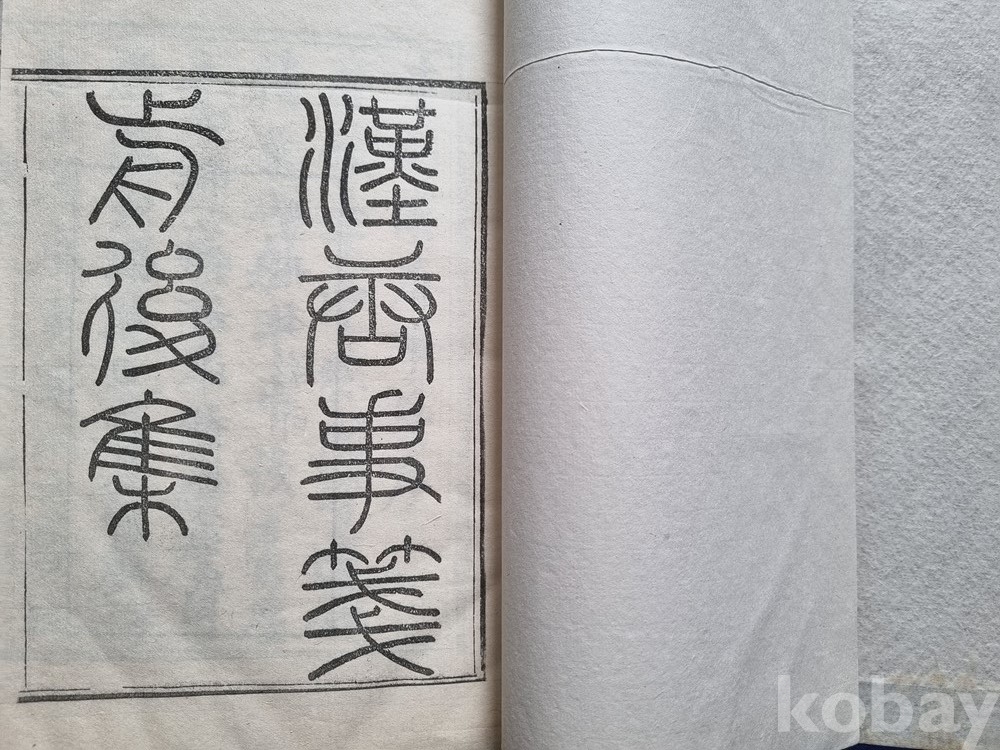 漢唐事箋
前後集
kobay